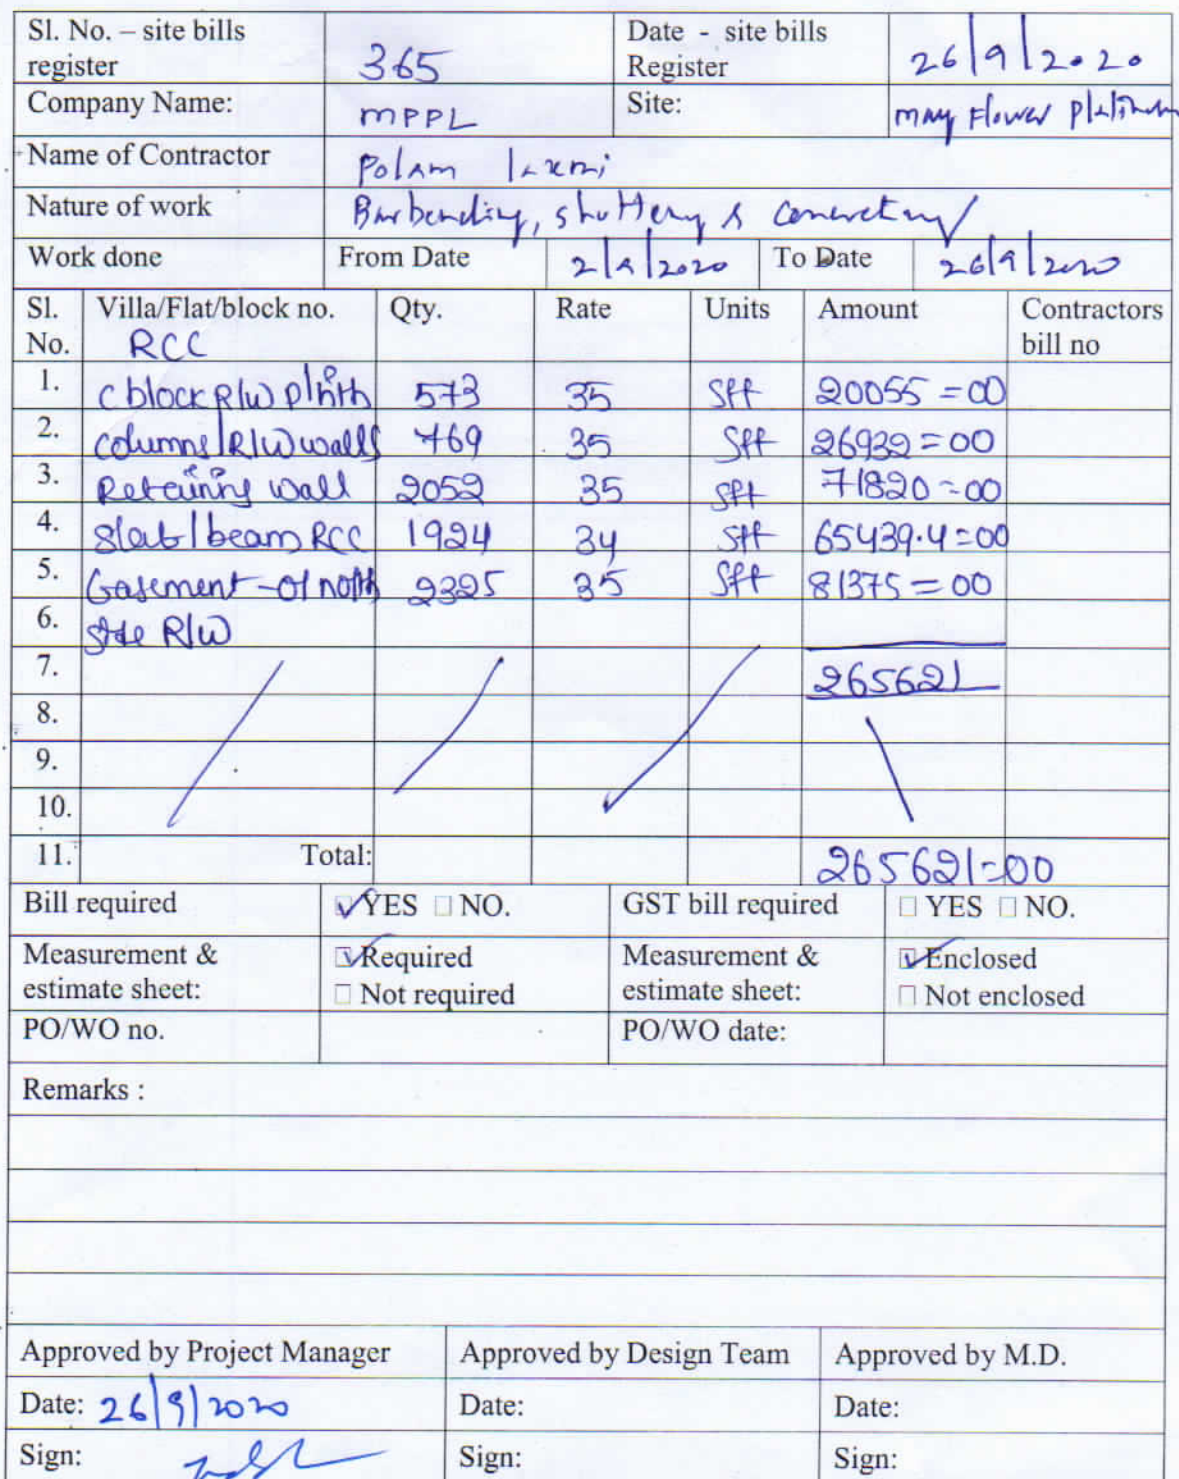 Sl. No. – site bills register 365 Date - site bills Register 26/9/2020
Company Name: MPPL Site: May Flower Platinum
Name of Contractor Polam laxmi
Nature of work Barbending, shuttering & concreting
Work done From Date 2/9/2020 To Date 26/9/2020
Sl. No. Villa/Flat/block no. RCC Qty. Rate Units Amount Contractors bill no
1. C block R/W plinth 573 35 Sft 20055=00
2. columns/R/W walls 769 35 Sft 26932=00
3. Retaining wall 2052 35 Sft 71820=00
4. Slab/beam RCC 1924 34 Sft 65439.4=00
5. basement -01 north 2325 35 Sft 81375=00
6. side R/W
7. 265621
8.
9.
10.
11. Total: 265621=00
Bill required YES NO. GST bill required YES NO.
Measurement & estimate sheet: Required Not required Measurement & estimate sheet: Enclosed Not enclosed
PO/WO no. PO/WO date:
Remarks :
Approved by Project Manager Approved by Design Team Approved by M.D.
Date: 26/9/2020 Date: Date:
Sign: Sign: Sign: